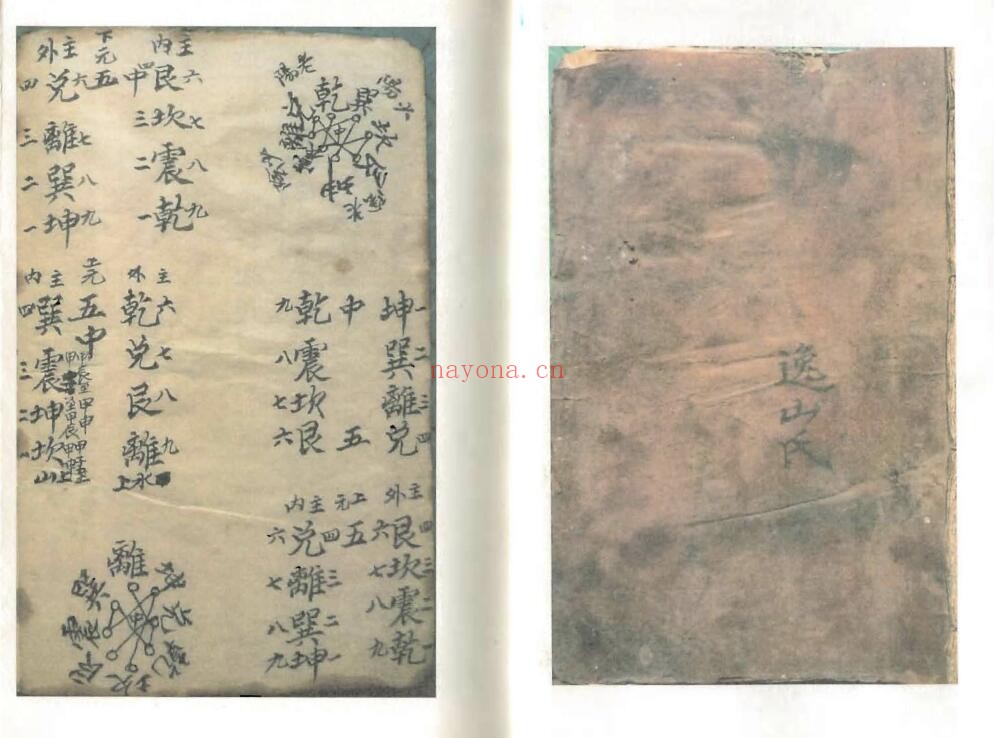 逸山氏
主外
四兌六
三離七
二巽八
一坤九
下元
五
中
主內
四艮六
三坎七
二震八
一乾九
老陽
乾
巽
坎
離
中
坤
主內
四巽
三震
二坤
一坎
山上
上元
五
中
主外
乾六
兌七
艮八
離九
水上
九乾
八震
七坎
六艮
中
五
坤一
巽二
離三
兌四
主內
六兌四
七離三
八巽二
九坤一
上元
五
主外
六艮四
七坎三
八震二
九乾一
離
巽
坤
兌
震
中
乾
艮
坎
nayona.cn